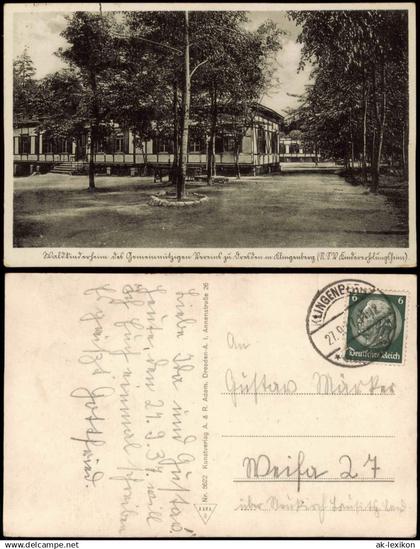 Waldkinderheim des Gemeinnützigen Vereins zu Dresden in Klingenberg (N.S.V. Kindererholungsheim).
Liebe Ida und Gustav
heute den 27. 9. 34 will
ich Euch einmal schreiben
Es grüßt Gottfried.
Nr. 5622 Kunstverlag A. & R. Adam, Dresden-A. I, Annenstraße 26
KLINGENBERG
27.9.
6 6
Deutsches Reich
An
Gustav Märker
Weifa 27
über Neukirch Lausitz Land
ak-lexikon © www.ak-lexikon.de